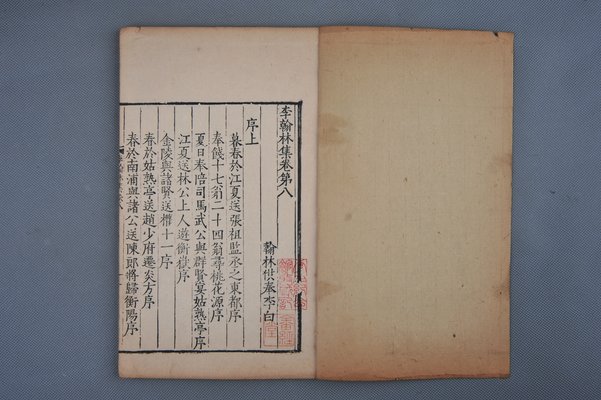 李翰林集卷第八
翰林供奉李白
序上
暮春於江夏送張祖監丞之東都序
奉餞十七翁二十四翁尋桃花源序
夏日奉陪司馬武公與群賢宴姑熟亭序
江夏送林公上人遊衡嶽序
金陵與諸賢送權十一序
春於姑熟亭送趙少府遷炎方序
春於南浦與諸公送陳郎將歸衡陽序